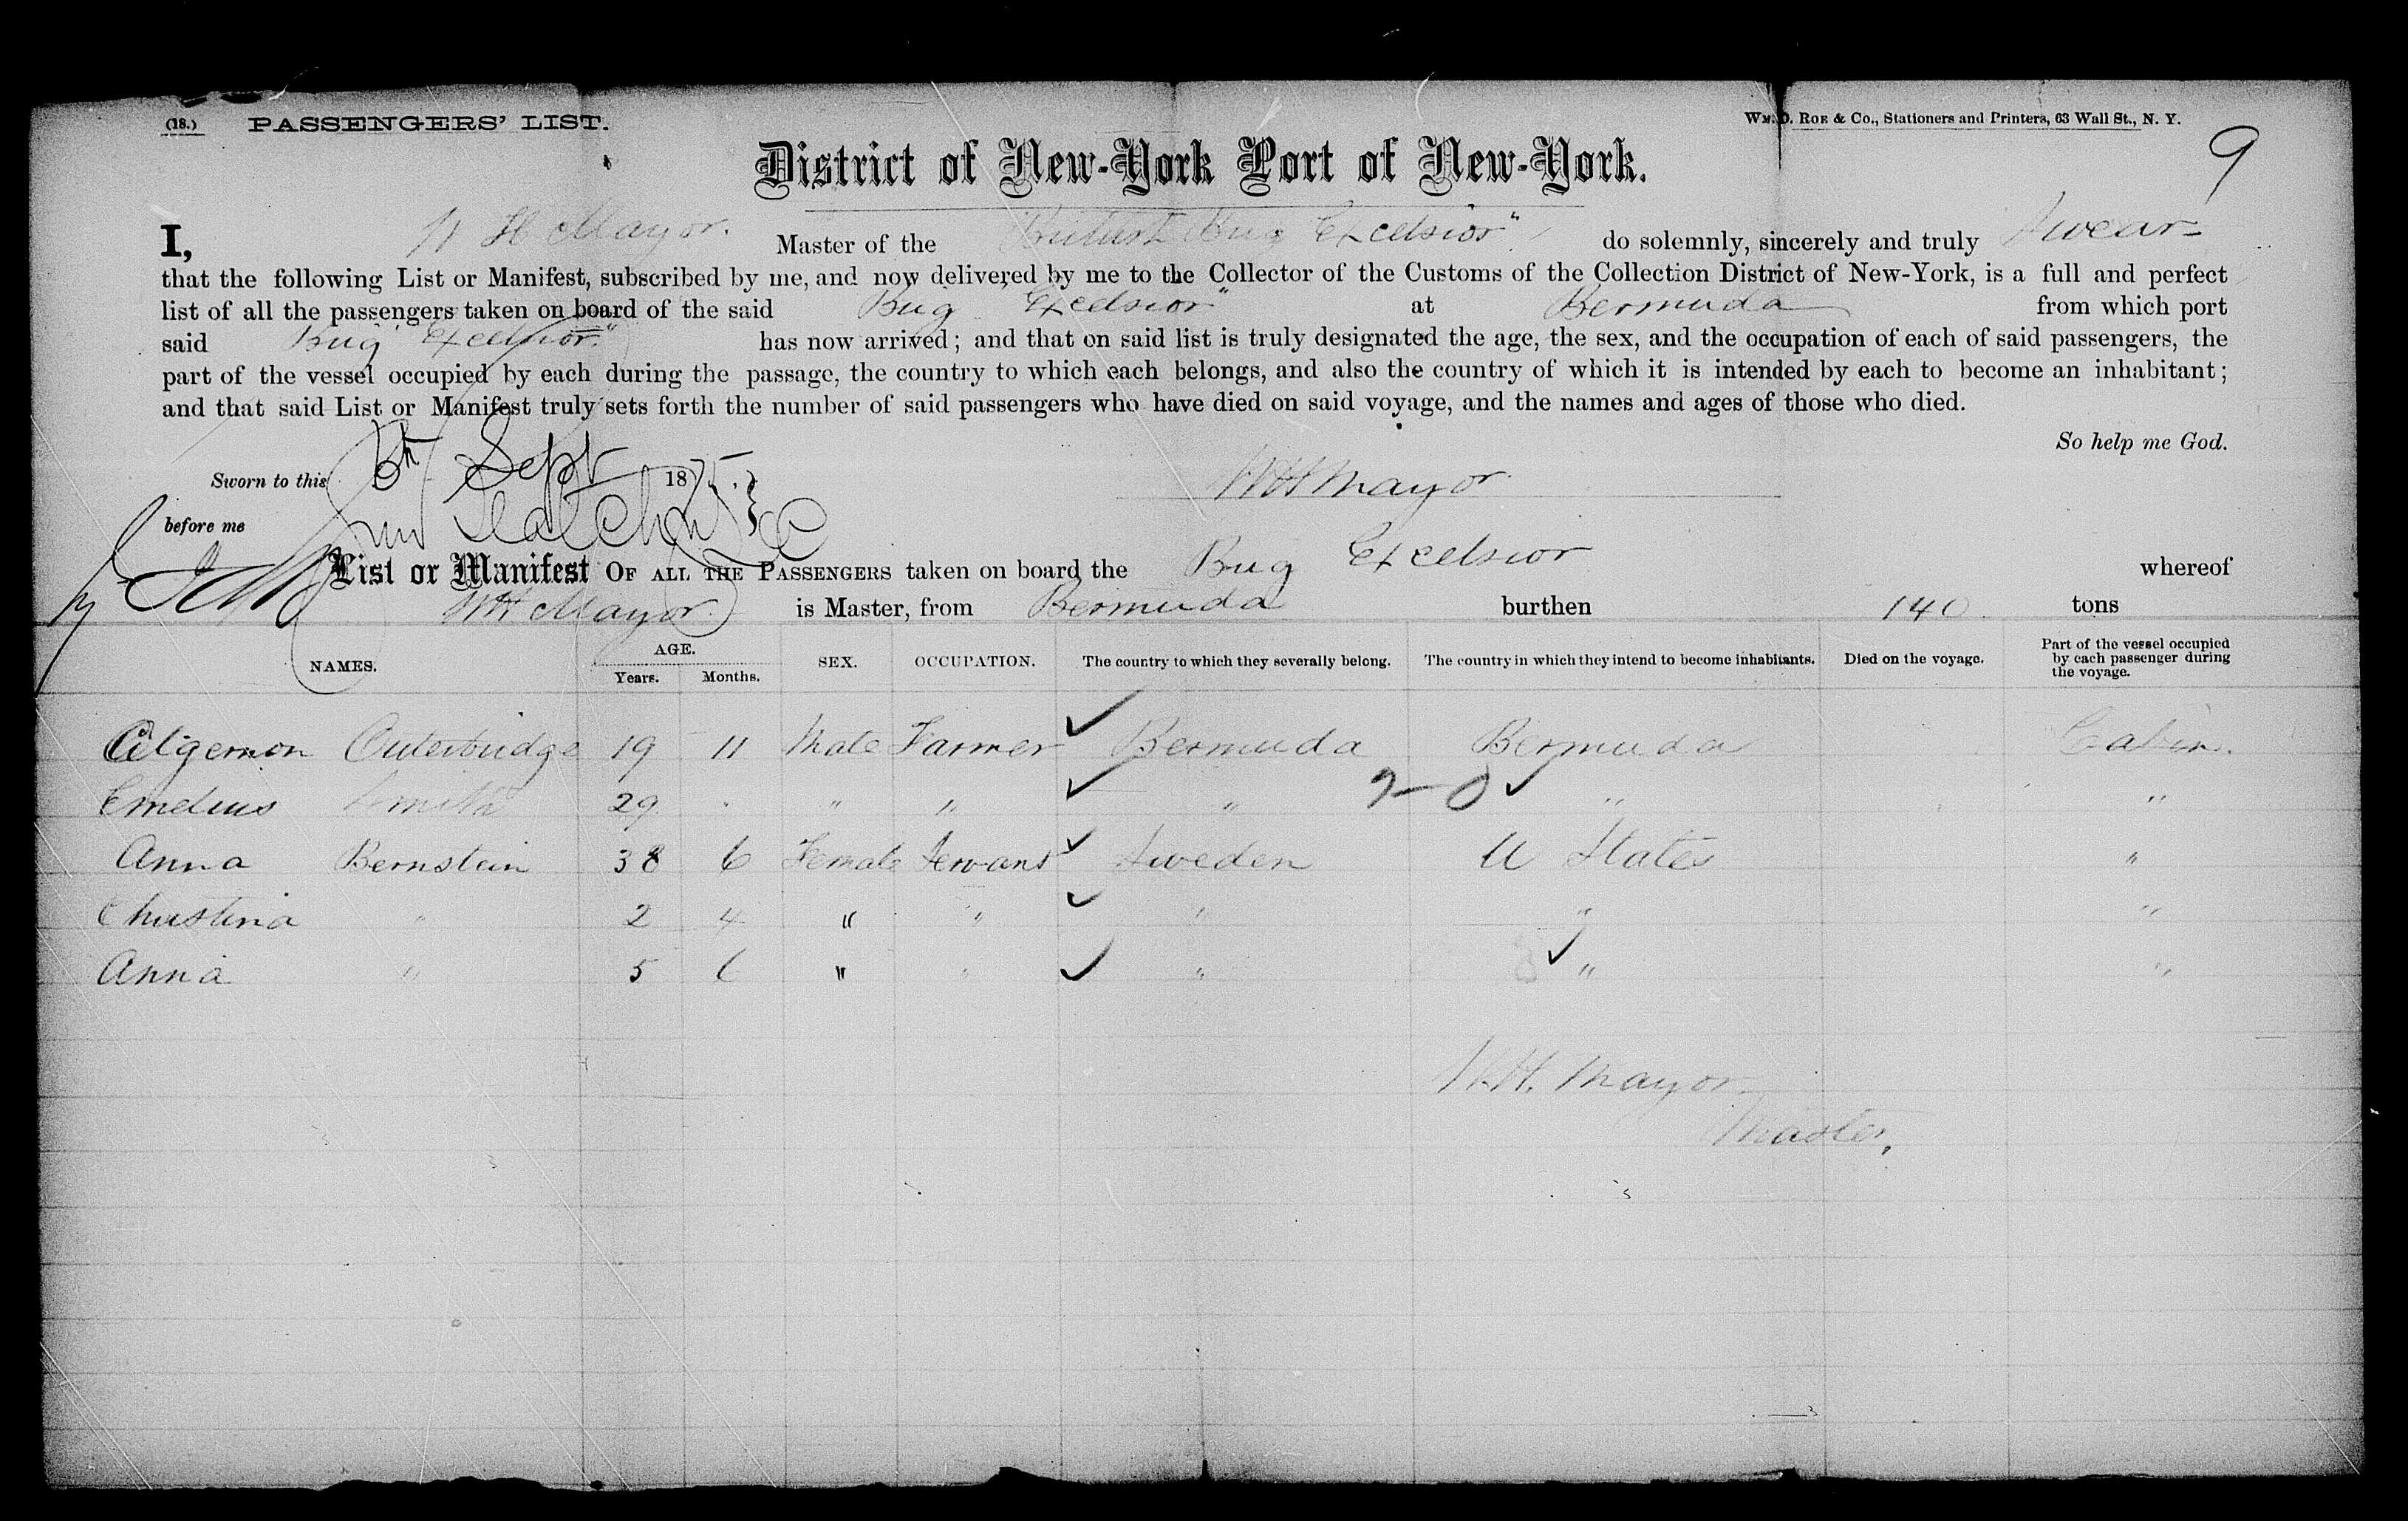 (18.) PASSENGERS' LIST. WM. D. ROE & CO., Stationers and Printers, 63 Wall St., N. Y.
9
District of New-York Port of New-York.
I, W H Mayor. Master of the "British Brig Excelsior" do solemnly, sincerely and truly Swear
that the following List or Manifest, subscribed by me, and now delivered by me to the Collector of the Customs of the Collection District of New-York, is a full and perfect
list of all the passengers taken on board of the said Brig "Excelsior" at Bermuda from which port
said Brig "Excelsior" has now arrived; and that on said list is truly designated the age, the sex, and the occupation of each of said passengers, the
part of the vessel occupied by each during the passage, the country to which each belongs, and also the country of which it is intended by each to become an inhabitant;
and that said List or Manifest truly sets forth the number of said passengers who have died on said voyage, and the names and ages of those who died.
So help me God.
Sworn to this 6th Sept 1875. WH Mayor
before me
List or Manifest OF ALL THE PASSENGERS taken on board the Brig Excelsior whereof
WH Mayor is Master, from Bermuda burthen 140 tons
NAMES. AGE. Years. Months. SEX. OCCUPATION. The country to which they severally belong. The country in which they intend to become inhabitants. Died on the voyage. Part of the vessel occupied by each passenger during the voyage.
Algernon Outerbridge 19 11 Male Farmer Bermuda Bermuda Cabin.
Emelius Smith 29 " " " " "
Anna Bernstein 38 6 Female Servant Sweden U States "
Christina " 2 4 " " " " "
Anna " 5 6 " " " " "
W.H. Mayor
Master.